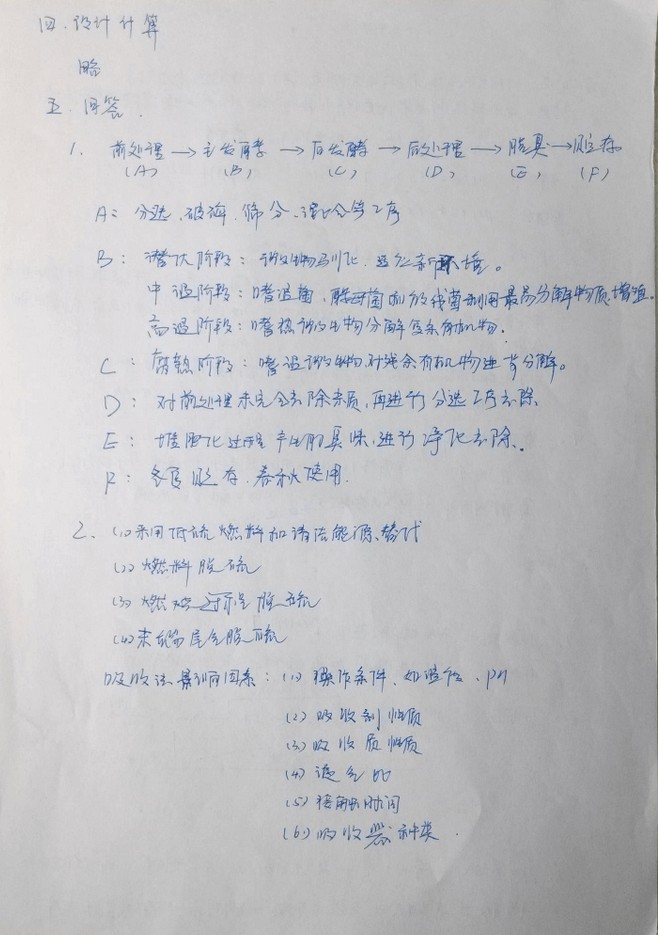 四.设计计算
略
五.回答.
1. 前处理→主发酵→后发酵→后处理→脱臭→贮存
(A) (B) (C) (D) (E) (F)
A: 分选.破碎.筛分.混合等工序
B: 潜伏阶段:微生物驯化.适应新环境。
中温阶段:嗜温菌.酵母菌和放线菌利用最易分解物质.增殖.
高温阶段:嗜热微生物分解复杂有机物.
C: 腐熟阶段:嗜温微生物.对残余有机物进步分解。
D: 对前处理未完全去除杂质,再进行分选工序去除
E: 堆肥化过程产生的臭味,进行净化去除.
F: 冬夏贮存.春秋使用.
2. (1)采用低硫燃料和清洁能源替代
(2)燃料脱硫
(3)燃烧过程脱硫
(4)末端尾气脱硫
吸收法影响因素:(1)操作条件.如温度.pH
(2)吸收剂性质
(3)吸收质性质
(4)液气比
(5)接触时间
(6)吸收器种类.